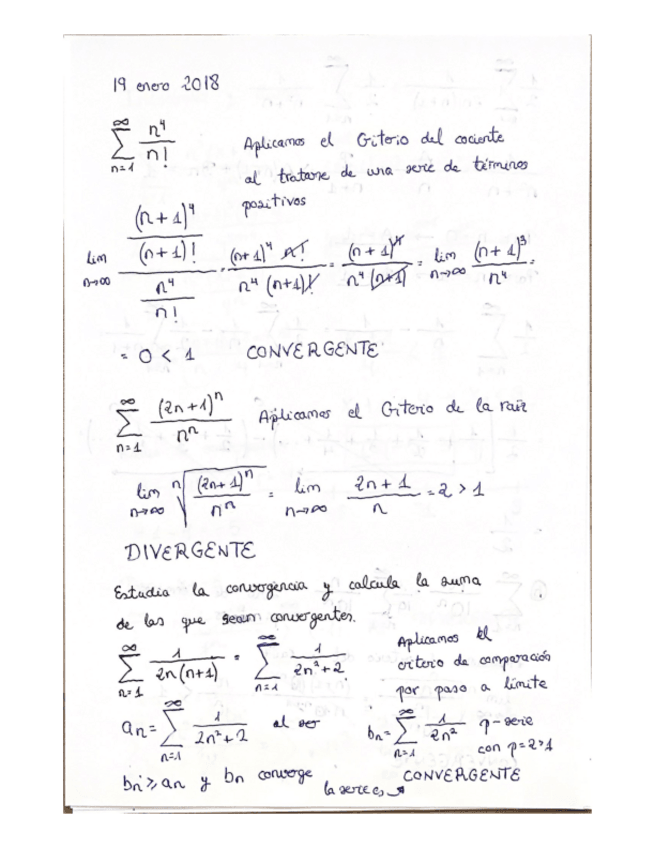 19 enero 2018
∑_{n=1}^{∞} n⁴/n! Aplicamos el Criterio del cociente
al tratarse de una serie de términos
positivos
lim_{n→∞} ((n+1)⁴/(n+1)!)/(n⁴/n!) = (n+1)⁴ n!/(n⁴ (n+1)!) = (n+1)⁴/(n⁴ (n+1)) = lim_{n→∞} (n+1)³/n⁴ =
= 0 < 1 CONVERGENTE
∑_{n=1}^{∞} (2n+1)ⁿ/nⁿ Aplicamos el Criterio de la raíz
lim_{n→∞} ⁿ√((2n+1)ⁿ/nⁿ) = lim_{n→∞} (2n+1)/n = 2 > 1
DIVERGENTE
Estudia la convergencia y calcula la suma
de las que sean convergentes.
∑_{n=1}^{∞} 1/(2n(n+1)) = ∑_{n=1}^{∞} 1/(2n²+2) Aplicamos el
criterio de comparación
por paso a límite
an = ∑_{n=1}^{∞} 1/(2n²+2) al ser bn = ∑_{n=1}^{∞} 1/(2n²) p-serie
con p=2>1
CONVERGENTE
bn ≥ an y bn converge la serie es